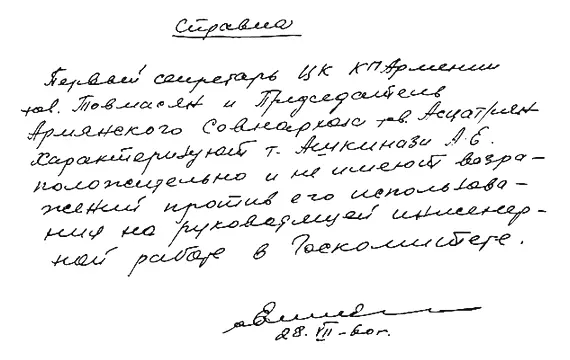 Справка
Первый секретарь ЦК КПАрмении
тов. Товмасян и Председатель
Армянского Совнархоза тов Асцатрян
характеризуют т. Ашкинази А.Е.
положительно и не имеют возра-
жений против его использова-
ния на руководящей инженер-
ной работе в Госкомитете.
28. VII-60г.